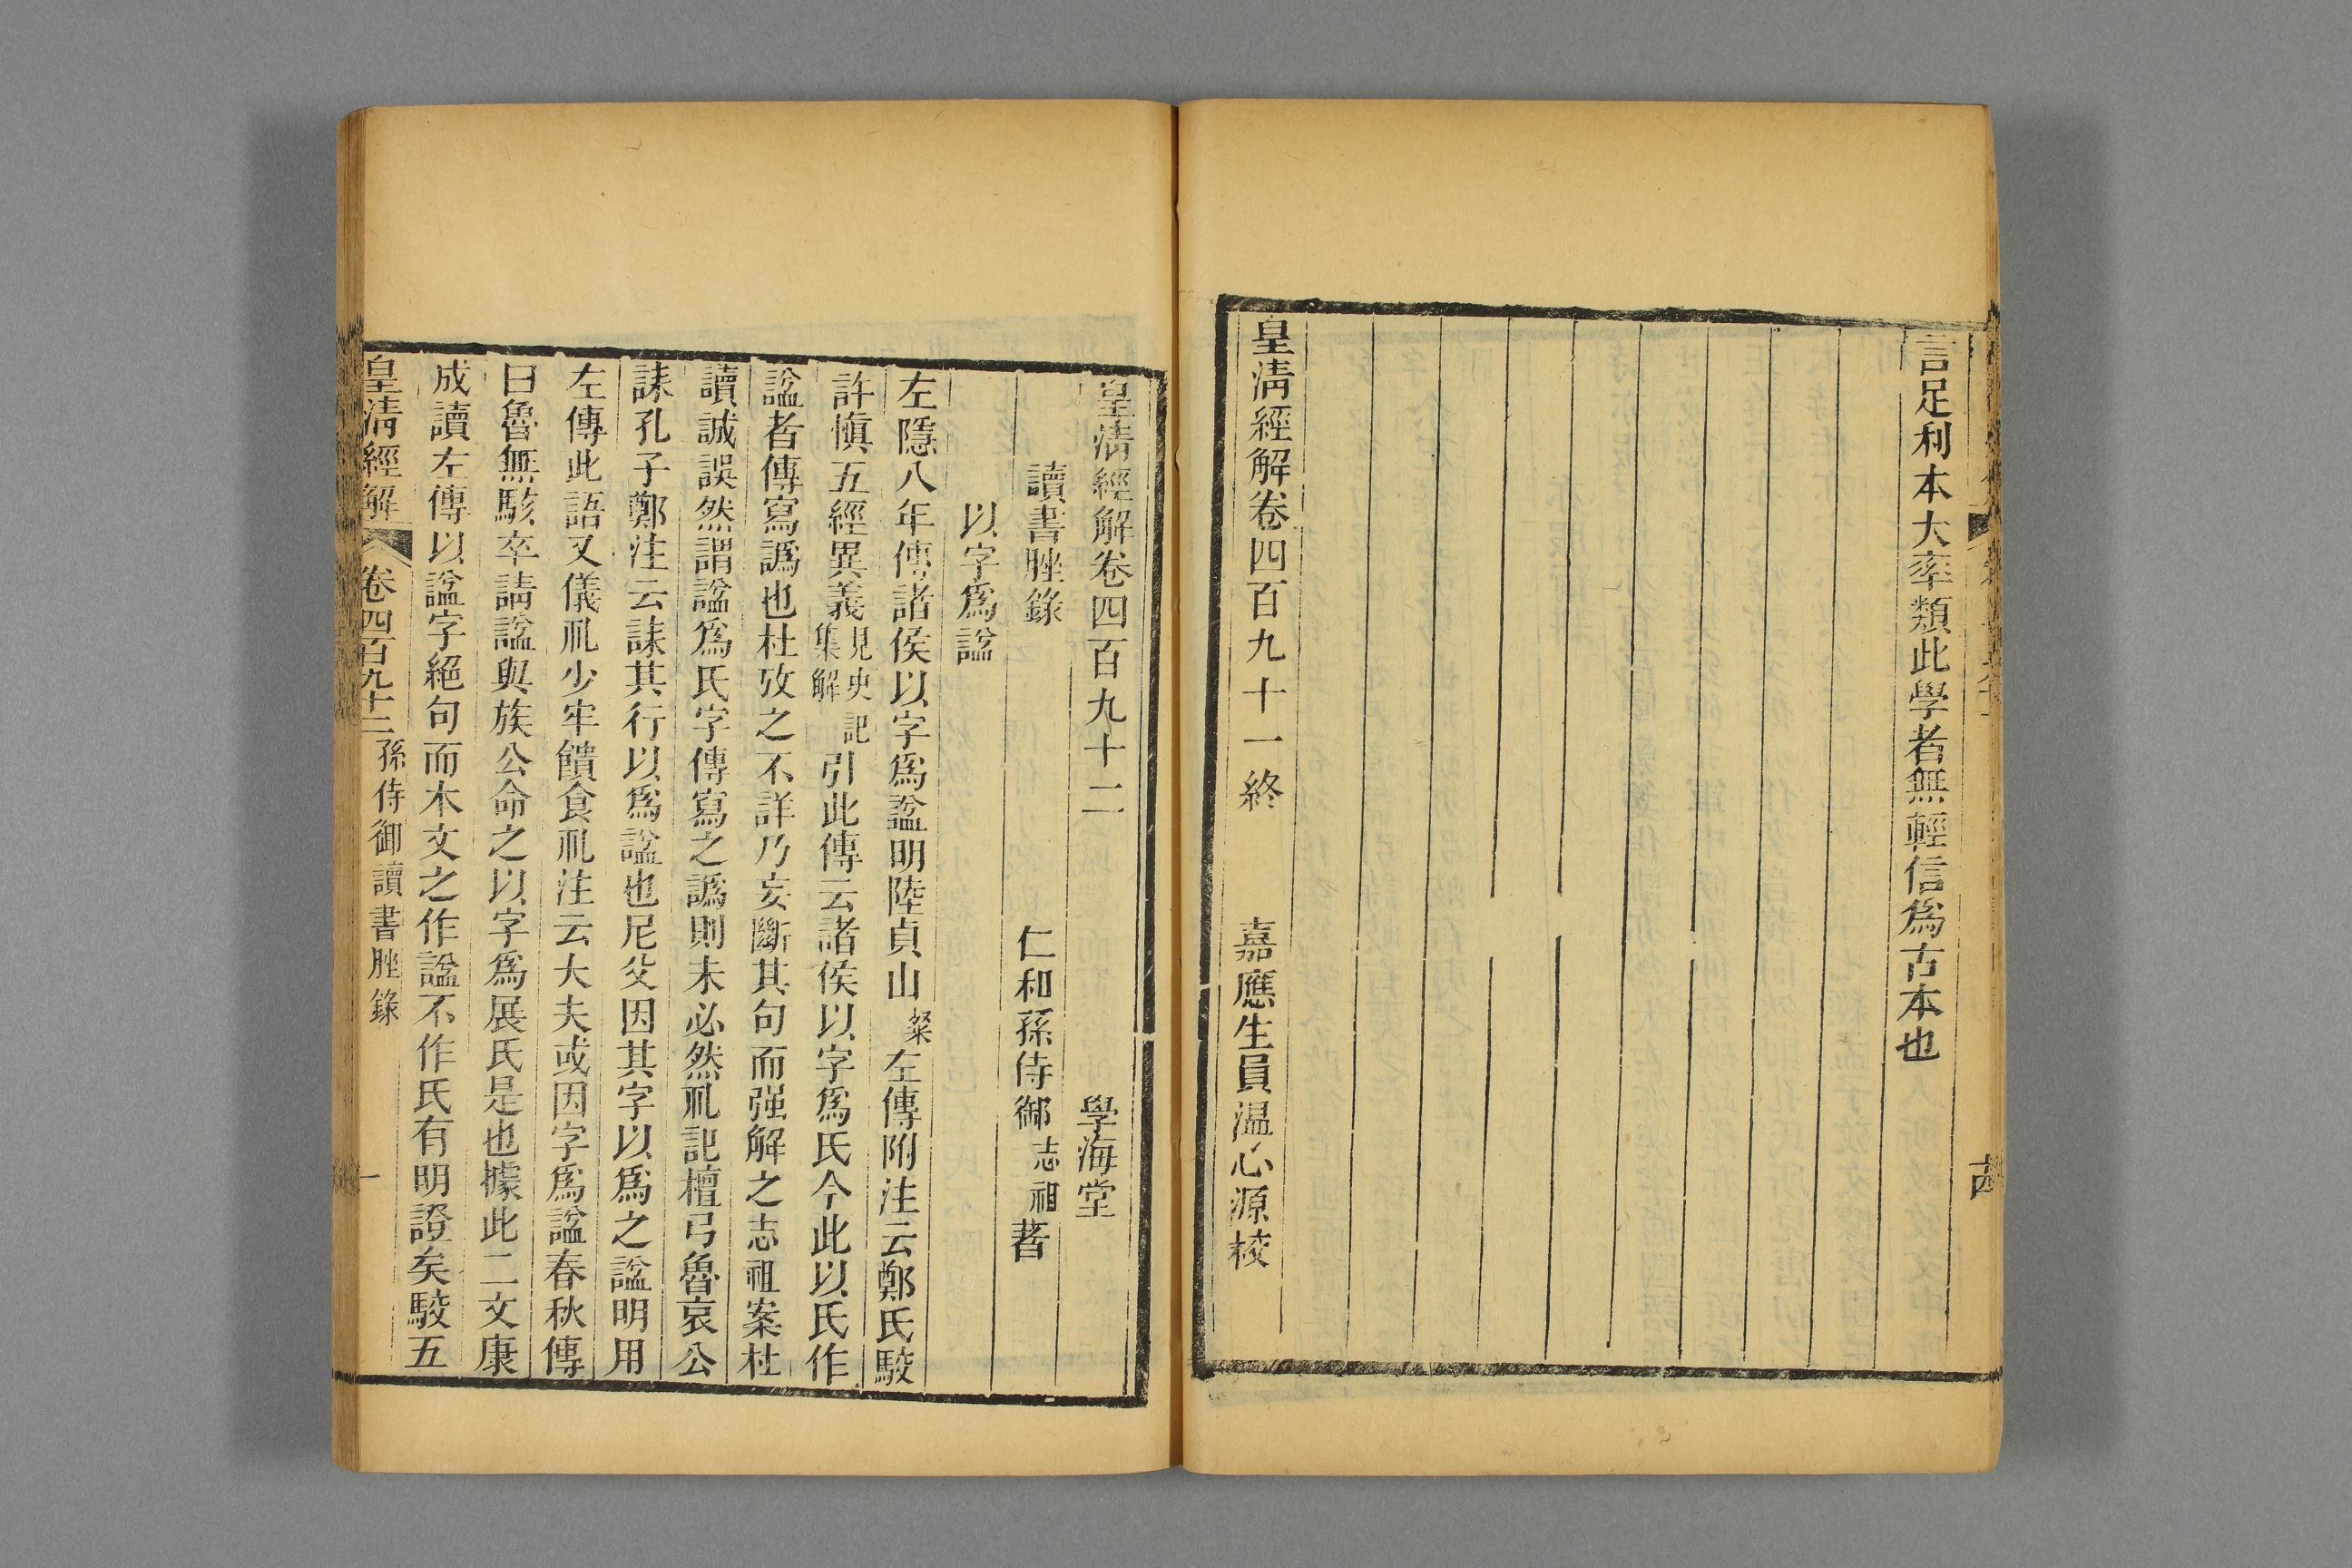 言足利本大率類此學者無輕信爲古本也
皇淸經解卷四百九十一終　嘉應生員温心源校
皇淸經解卷四百九十二　學海堂
讀書脞錄　仁和孫侍御志祖著
以字爲諡
左隱八年傳諸侯以字爲諡明陸貞山粲左傳附注云鄭氏駮
許愼五經異義見史記集解引此傳云諸侯以字爲氏今此以氏作
諡者傳寫譌也杜攷之不詳乃妄斷其句而强解之志祖案杜
讀誠誤然謂諡爲氏字傳寫之譌則未必然礼記檀弓魯哀公
誄孔子鄭注云誄其行以爲諡也尼父因其字以爲之諡明用
左傳此語又儀礼少牢饋食礼注云大夫或因字爲諡春秋傳
曰魯無駭卒請諡與族公命之以字爲展氏是也據此二文康
成讀左傳以諡字絕句而本文之作諡不作氏有明證矣駮五
皇淸經解　卷四百九十二　孫侍御讀書脞錄　一